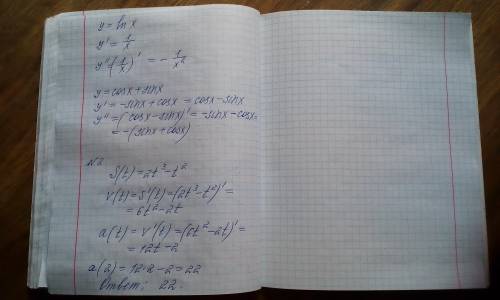 y = ln x
y' = 1/x
y'' = (1/x)' = - 1/x²
y = cosx + sinx
y' = -sinx + cosx = cosx - sinx
y'' = (cosx - sinx)' = -sinx - cosx =
= -(sinx + cosx)
N.2
S(t) = 2t³ - t²
V(t) = S'(t) = (2t³ - t²)' =
= 6t² - 2t
a(t) = V'(t) = (6t² - 2t)' =
= 12t - 2
a(2) = 12·2 - 2 = 22
Ответ: 22.